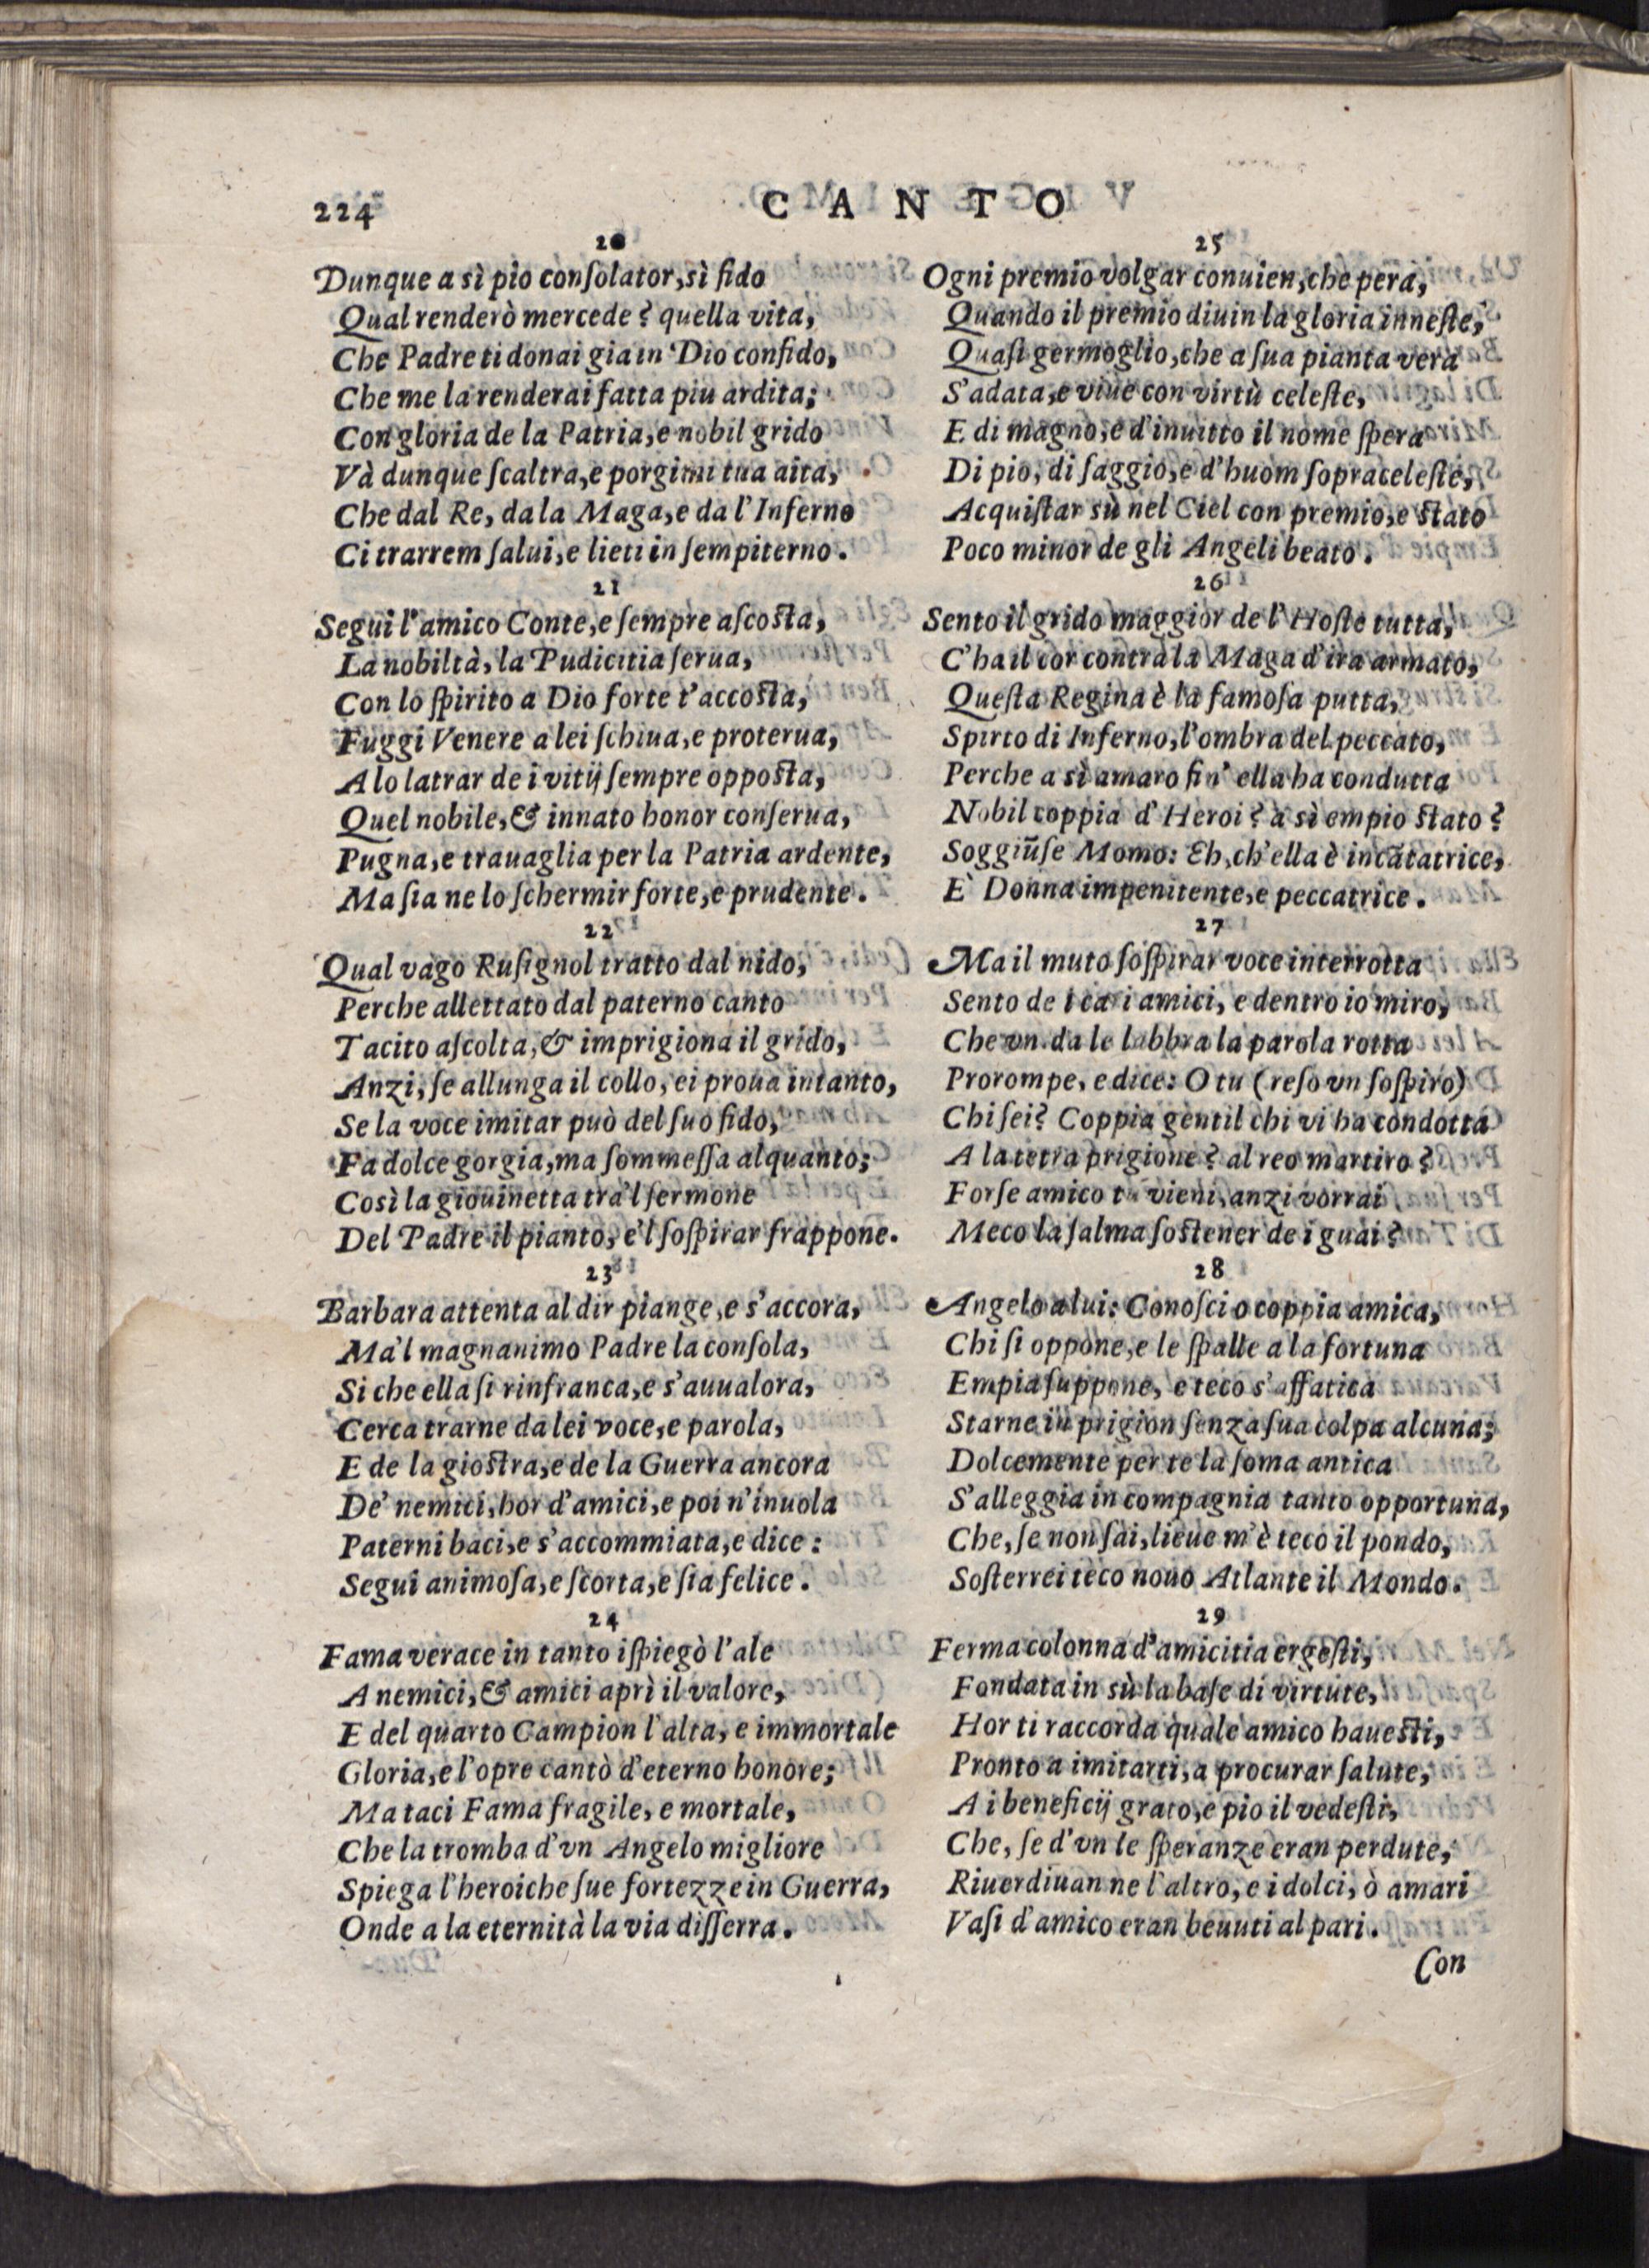 224
CANTO
20
Dunque a sì pio conſolator, sì fido
Qual renderò mercede? quella vita,
Che Padre ti donai gia in Dio confido,
Che me la renderai fatta piu ardita;
Con gloria de la Patria, e nobil grido
Và dunque ſcaltra, e porgimi tua aita,
Che dal Re, da la Maga, e da l'Inferno
Ci trarrem ſalui, e lieti in ſempiterno.
21
Segui l'amico Conte, e ſempre aſcoſta,
La nobiltà, la Pudicitia ſerua,
Con lo ſpirito a Dio forte t'accoſta,
Fuggi Venere a lei ſchiua, e proterua,
A lo latrar de i vitij ſempre oppoſta,
Quel nobile, & innato honor conſerua,
Pugna, e trauaglia per la Patria ardente,
Ma ſia ne lo ſchermir forte, e prudente.
22
Qual vago Ruſignol tratto dal nido,
Perche allettato dal paterno canto
Tacito aſcolta, & imprigiona il grido,
Anzi, ſe allunga il collo, ei proua intanto,
Se la voce imitar può del ſuo fido,
Fa dolce gorgia, ma ſommeſſa alquanto;
Così la giouinetta tra'l ſermone
Del Padre il pianto, e'l ſoſpirar frappone.
23
Barbara attenta al dir piange, e s'accora,
Ma'l magnanimo Padre la conſola,
Si che ella ſi rinfranca, e s'auualora,
Cerca trarne da lei voce, e parola,
E de la gioſtra, e de la Guerra ancora
De' nemici, hor d'amici, e poi n'inuola
Paterni baci, e s'accommiata, e dice:
Segui animoſa, e ſcorta, e ſia felice.
24
Fama verace in tanto iſpiegò l'ale
A nemici, & amici aprì il valore,
E del quarto Campion l'alta, e immortale
Gloria, e l'opre cantò d'eterno honore;
Ma taci Fama fragile, e mortale,
Che la tromba d'vn Angelo migliore
Spiega l'heroiche ſue fortezze in Guerra,
Onde a la eternità la via diſſerra.
25
Ogni premio volgar conuien, che pera,
Quando il premio diuin la gloria inneſte,
Quaſi germoglio, che a ſua pianta vera
S'adata, e viue con virtù celeſte,
E di magno, e d'inuitto il nome ſpera
Di pio, di ſaggio, e d'huom ſopraceleſte,
Acquiſtar sù nel Ciel con premio, e ſtato
Poco minor de gli Angeli beato.
26
Sento il grido maggior de l'Hoſte tutta,
C'ha il cor contra la Maga d'ira armato,
Queſta Regina è la famoſa putta,
Spirto di Inferno, l'ombra del peccato,
Perche a sì amaro fin' ella ha condutta
Nobil coppia d'Heroi? à sì empio ſtato?
Soggiũſe Momo: Eh, ch'ella è incãtatrice,
E' Donna impenitente, e peccatrice.
27
Ma il muto ſoſpirar voce interrotta
Sento de i cari amici, e dentro io miro,
Che vn da le labbra la parola rotta
Prorompe, e dice: O tu (reſo vn ſoſpiro)
Chi ſei? Coppia gentil chi vi ha condotta
A la tetra prigione? al reo martiro?
Forſe amico tu vieni, anzi vorrai
Meco la ſalma ſoſtener de i guai?
28
Angelo a lui: Conoſci o coppia amica,
Chi ſi oppone, e le ſpalle a la fortuna
Empia ſuppone, e teco s'affatica
Starne in prigion ſenza ſua colpa alcuna;
Dolcemente per te la ſoma antica
S'alleggia in compagnia tanto opportuna,
Che, ſe non ſai, lieue m'è teco il pondo,
Soſterrei teco nouo Atlante il Mondo.
29
Ferma colonna d'amicitia ergeſti,
Fondata in sù la baſe di virtute,
Hor ti raccorda quale amico haueſti,
Pronto a imitarti, a procurar ſalute,
A i beneficij grato, e pio il vedeſti,
Che, ſe d'vn le ſperanze eran perdute,
Riuerdiuan ne l'altro, e i dolci, ò amari
Vaſi d'amico eran beuuti al pari.
Con